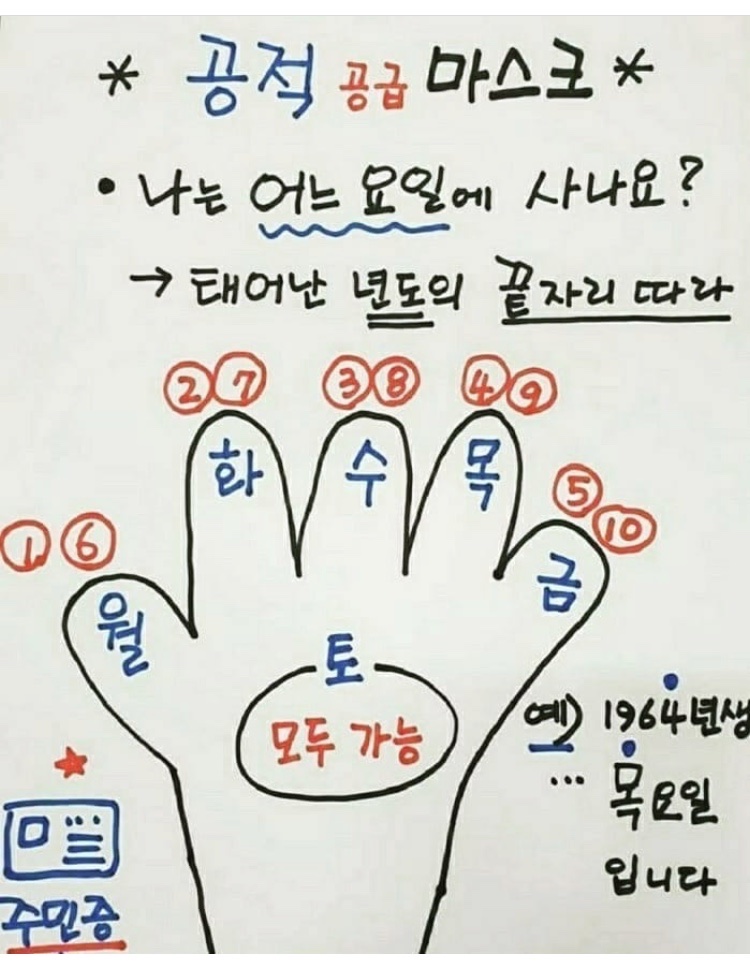 * 공적 공급 마스크 *
• 나는 어느 요일에 사나요?
→ 태어난 년도의 끝자리 따라
② ⑦ ③ ⑧ ④ ⑨
⑤ ⑩
① ⑥
화 수 목
금
월
토
모두 가능
예) 1964년생
... 목요일
입니다
주민증